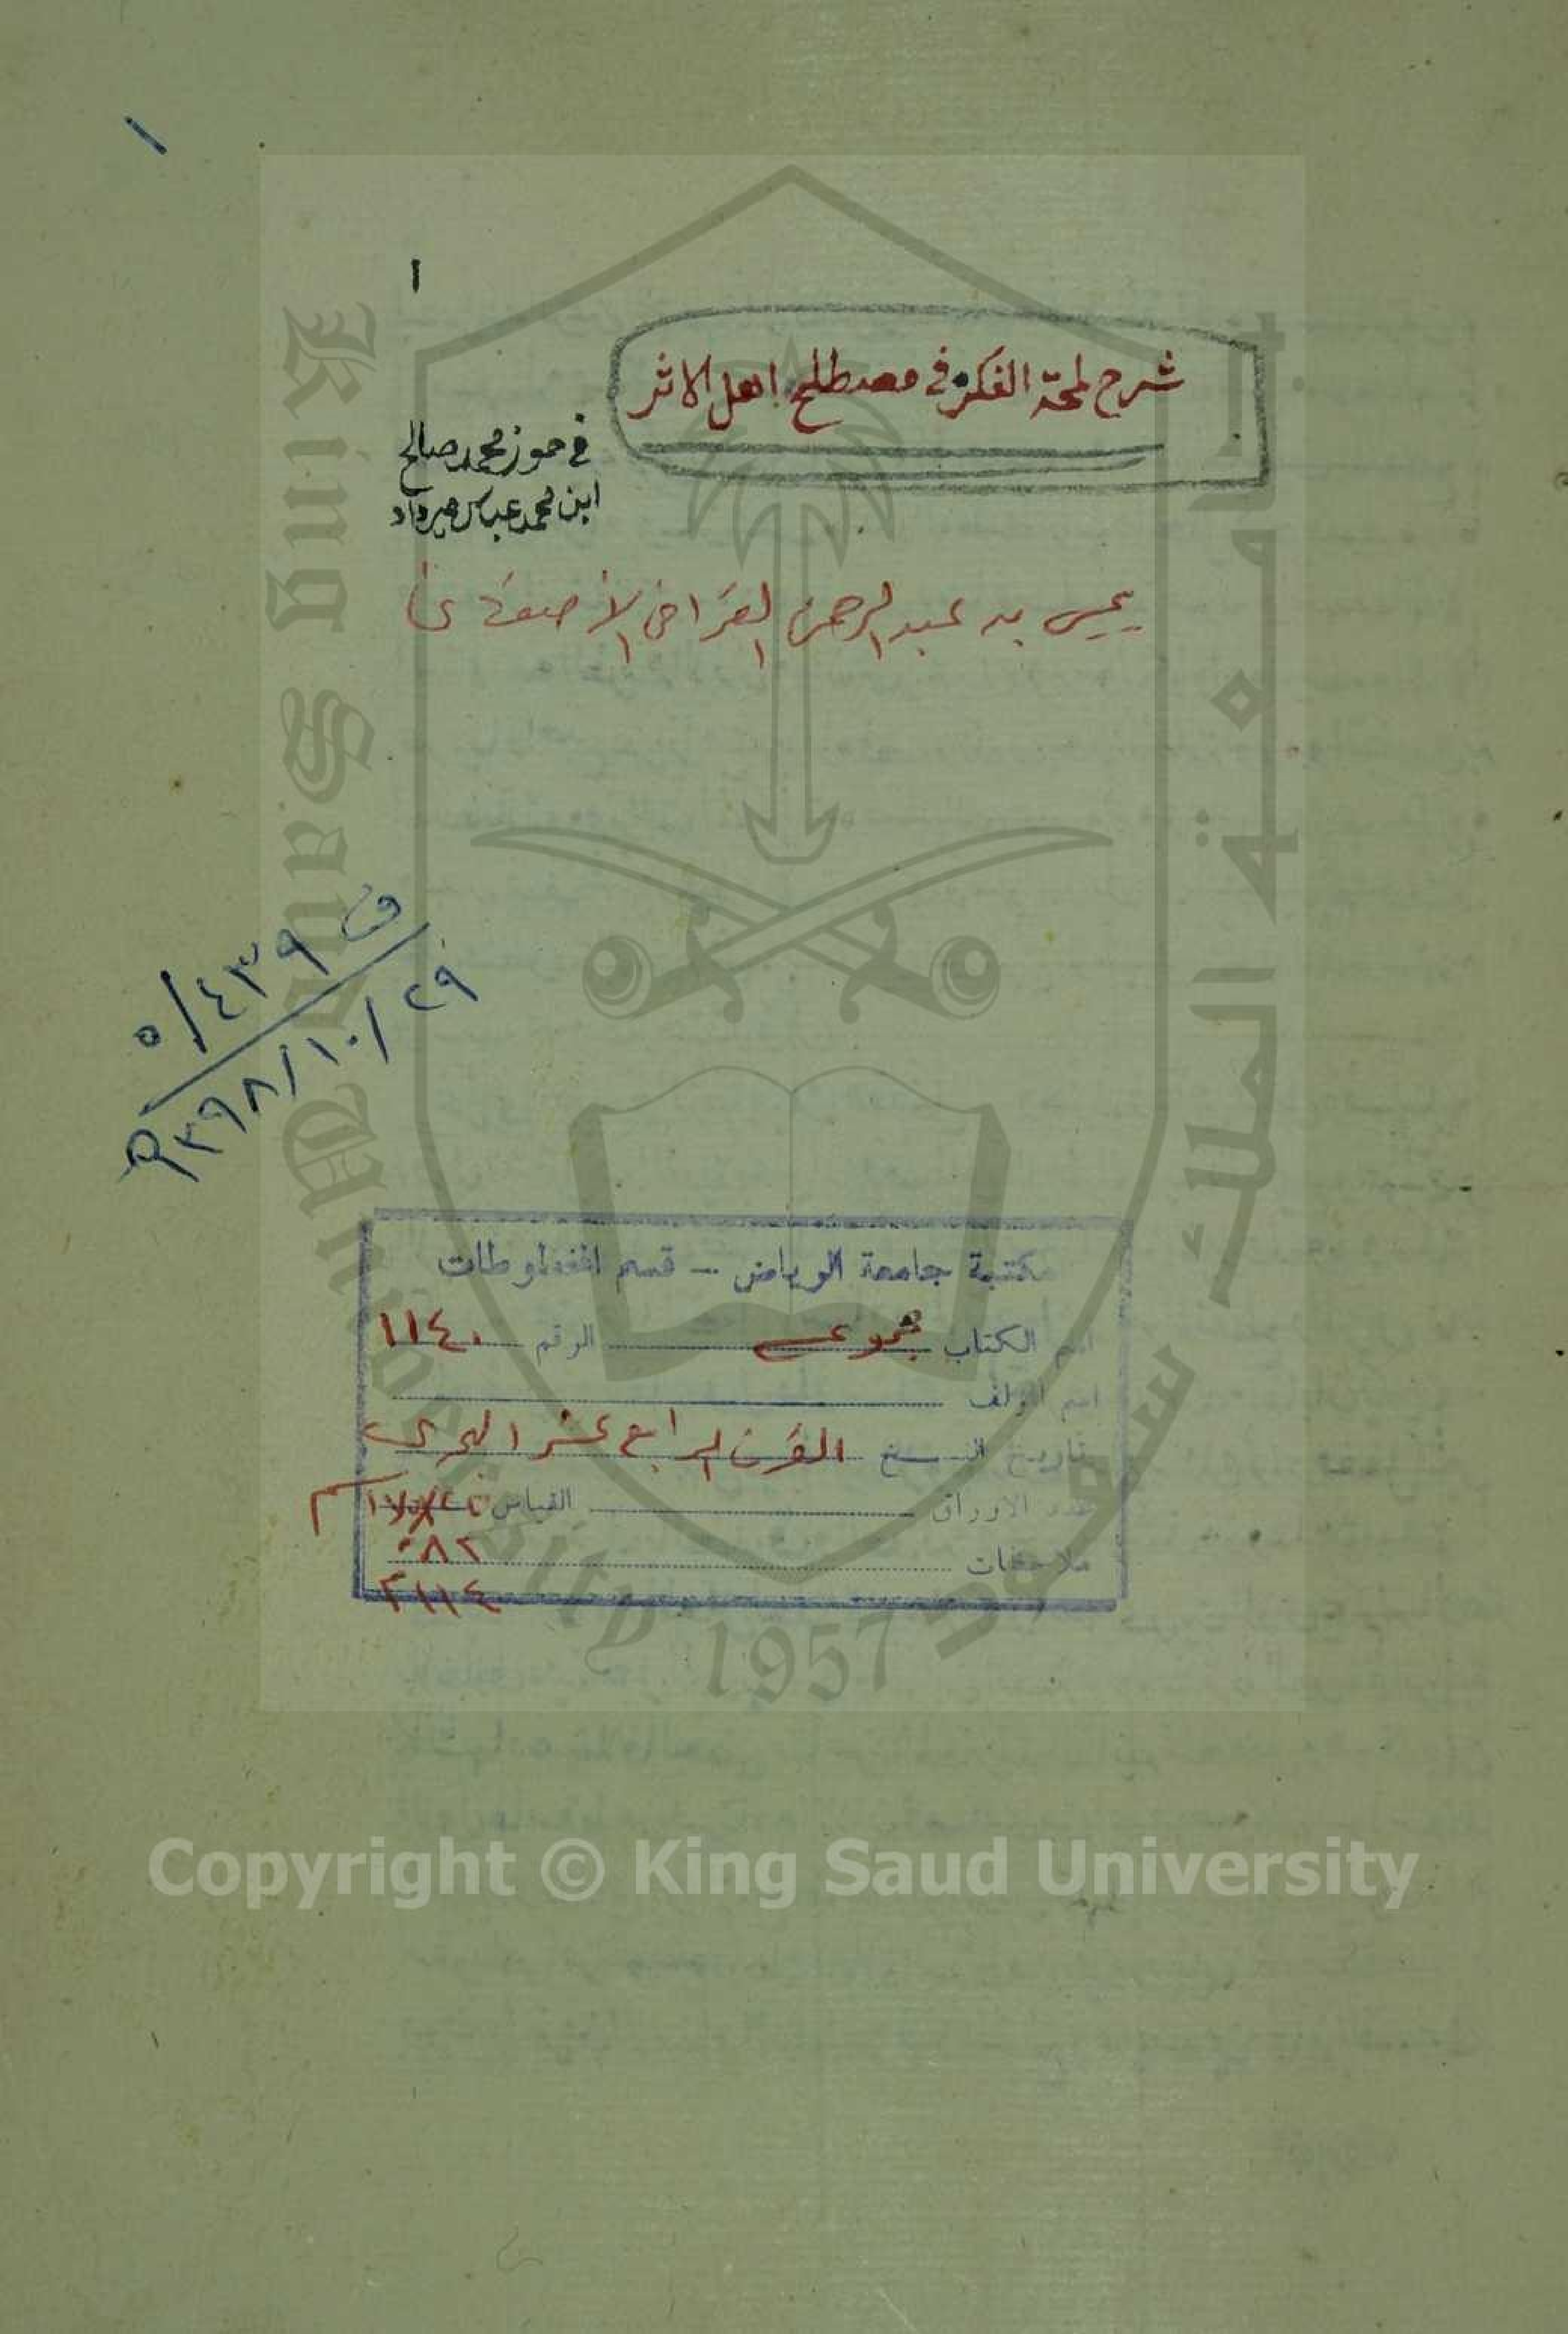 ١
١
شرح لمحة الفكر في مصطلح اهل الاثر
في حوز محمد صالح
ابن محمد عباس ميرداد
يحيى بن عبد الرحمن القرافي الأصفهاني
ف ٤٣٩/٥
٢٩/١٠/١٣٩٨هـ
مكتبة جامعة الرياض – قسم المخطوطات
اسم الكتاب مجموع الرقم ١١٤٠
اسم المؤلف
تاريخ النسخ القرن الرابع عشر الهجري
عدد الاوراق القياس سم
ملاحظات ٠٨٢
٢١١٤
King Saud University
جامعة الملك سعود
1957
Copyright © King Saud University